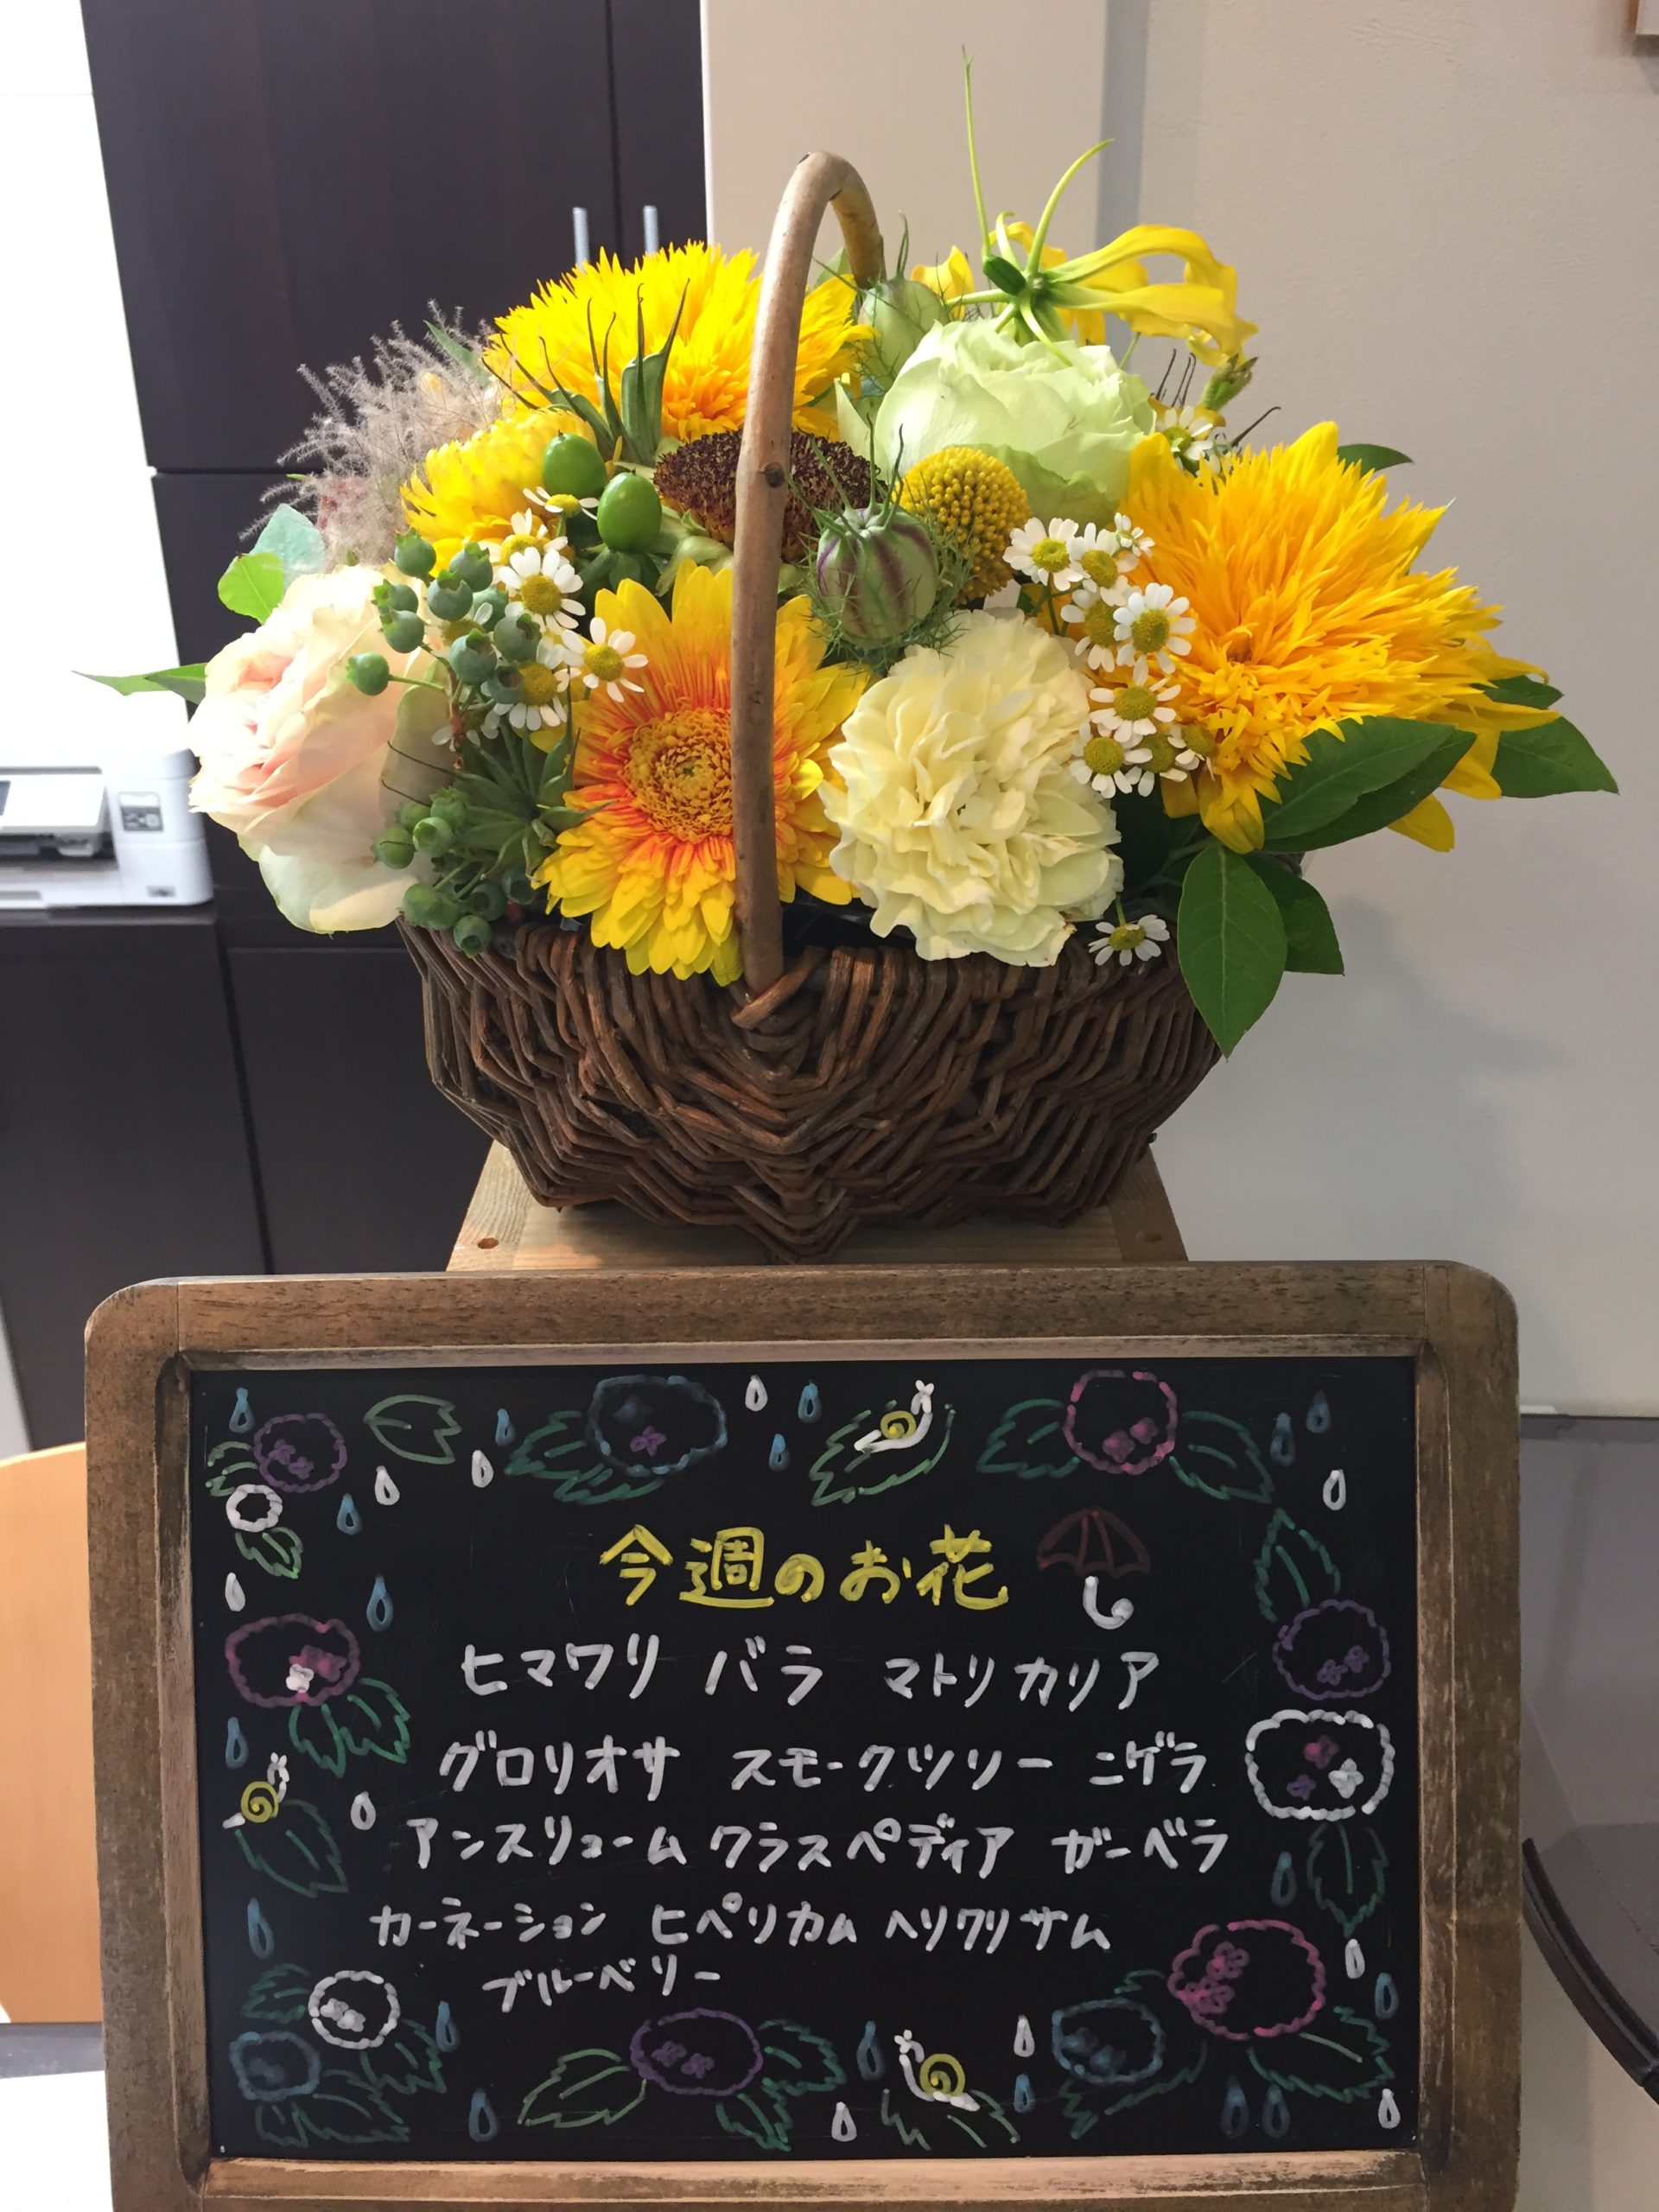 今週のお花
ヒマワリ バラ マトリカリア
グロリオサ スモークツリー ニゲラ
アンスリューム クラスペディア ガーベラ
カーネーション ヒペリカム ヘリクリサム
ブルーベリー